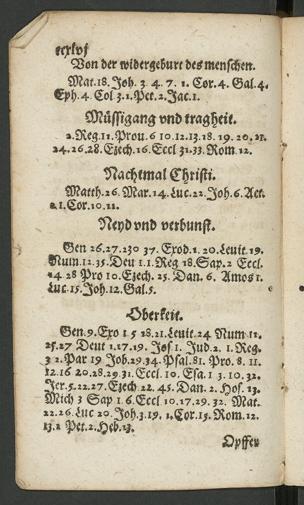 ccxlvj
Von der widergeburt des menschen.
Mat.18. Joh. 3. 4. 7. 1. Cor. 4. Gal. 4.
Eph. 4. Col. 3. 1. Pet. 2. Jac. 1.
Müssigang vnd tragheit.
2. Reg. 11. Prou. 6 10. 12. 13. 18. 19. 20. 21.
24. 26. 28. Ezech. 16. Eccl 31. 33. Rom 12.
Nachtmal Christi.
Matth. 26. Mar. 14. Luc. 22. Joh. 6. Act.
2. 1. Cor. 10. 11.
Neyd vnd verbunst.
Gen 26. 27. 30 37. Exod. 1. 20. Leuit. 19.
Num. 12. 35. Deu 1. 1. Reg 18. Sap. 2 Eccl.
14 28 Pro 10. Ezech. 25. Dan. 6. Amos 1.
Luc. 15. Joh. 12. Gal. 5.
Oberkeit.
Gen. 9. Exo 1 5 18. 21. Leuit. 24 Num 11.
25. 27 Deut 1. 17. 19. Jos 1. Jud 2. 1. Reg.
3 2. Par 19 Job. 29. 34. Psal. 81. Pro. 8. 11.
12. 16 20. 28. 29. 31. Eccl. 10. Esa. 1 3. 10. 32.
Jer. 5. 22. 27. Ezech 22. 45. Dan. 2. Hos. 13.
Mich 3 Sap 1 6. Eccl 10. 17. 29. 32. Mat.
22. 26. Luc 20. Joh. 3. 19. 1. Cor. 15. Rom. 12.
13. 2 Pet. 2. Heb. 13.
Opffer